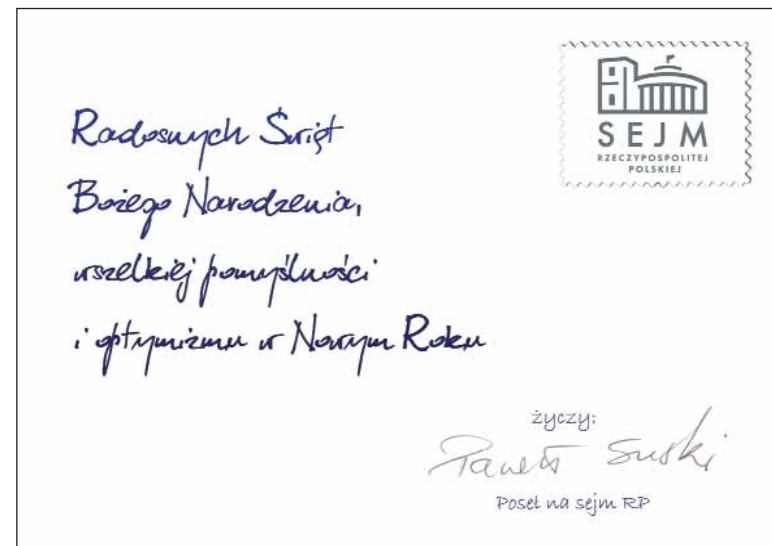 SEJM
RZECZYPOSPOLITEJ
POLSKIEJ
Radosnych Świąt
Bożego Narodzenia,
wszelkiej pomyślności
i optymizmu w Nowym Roku
życzy:
Paweł Suski
Poseł na sejm RP